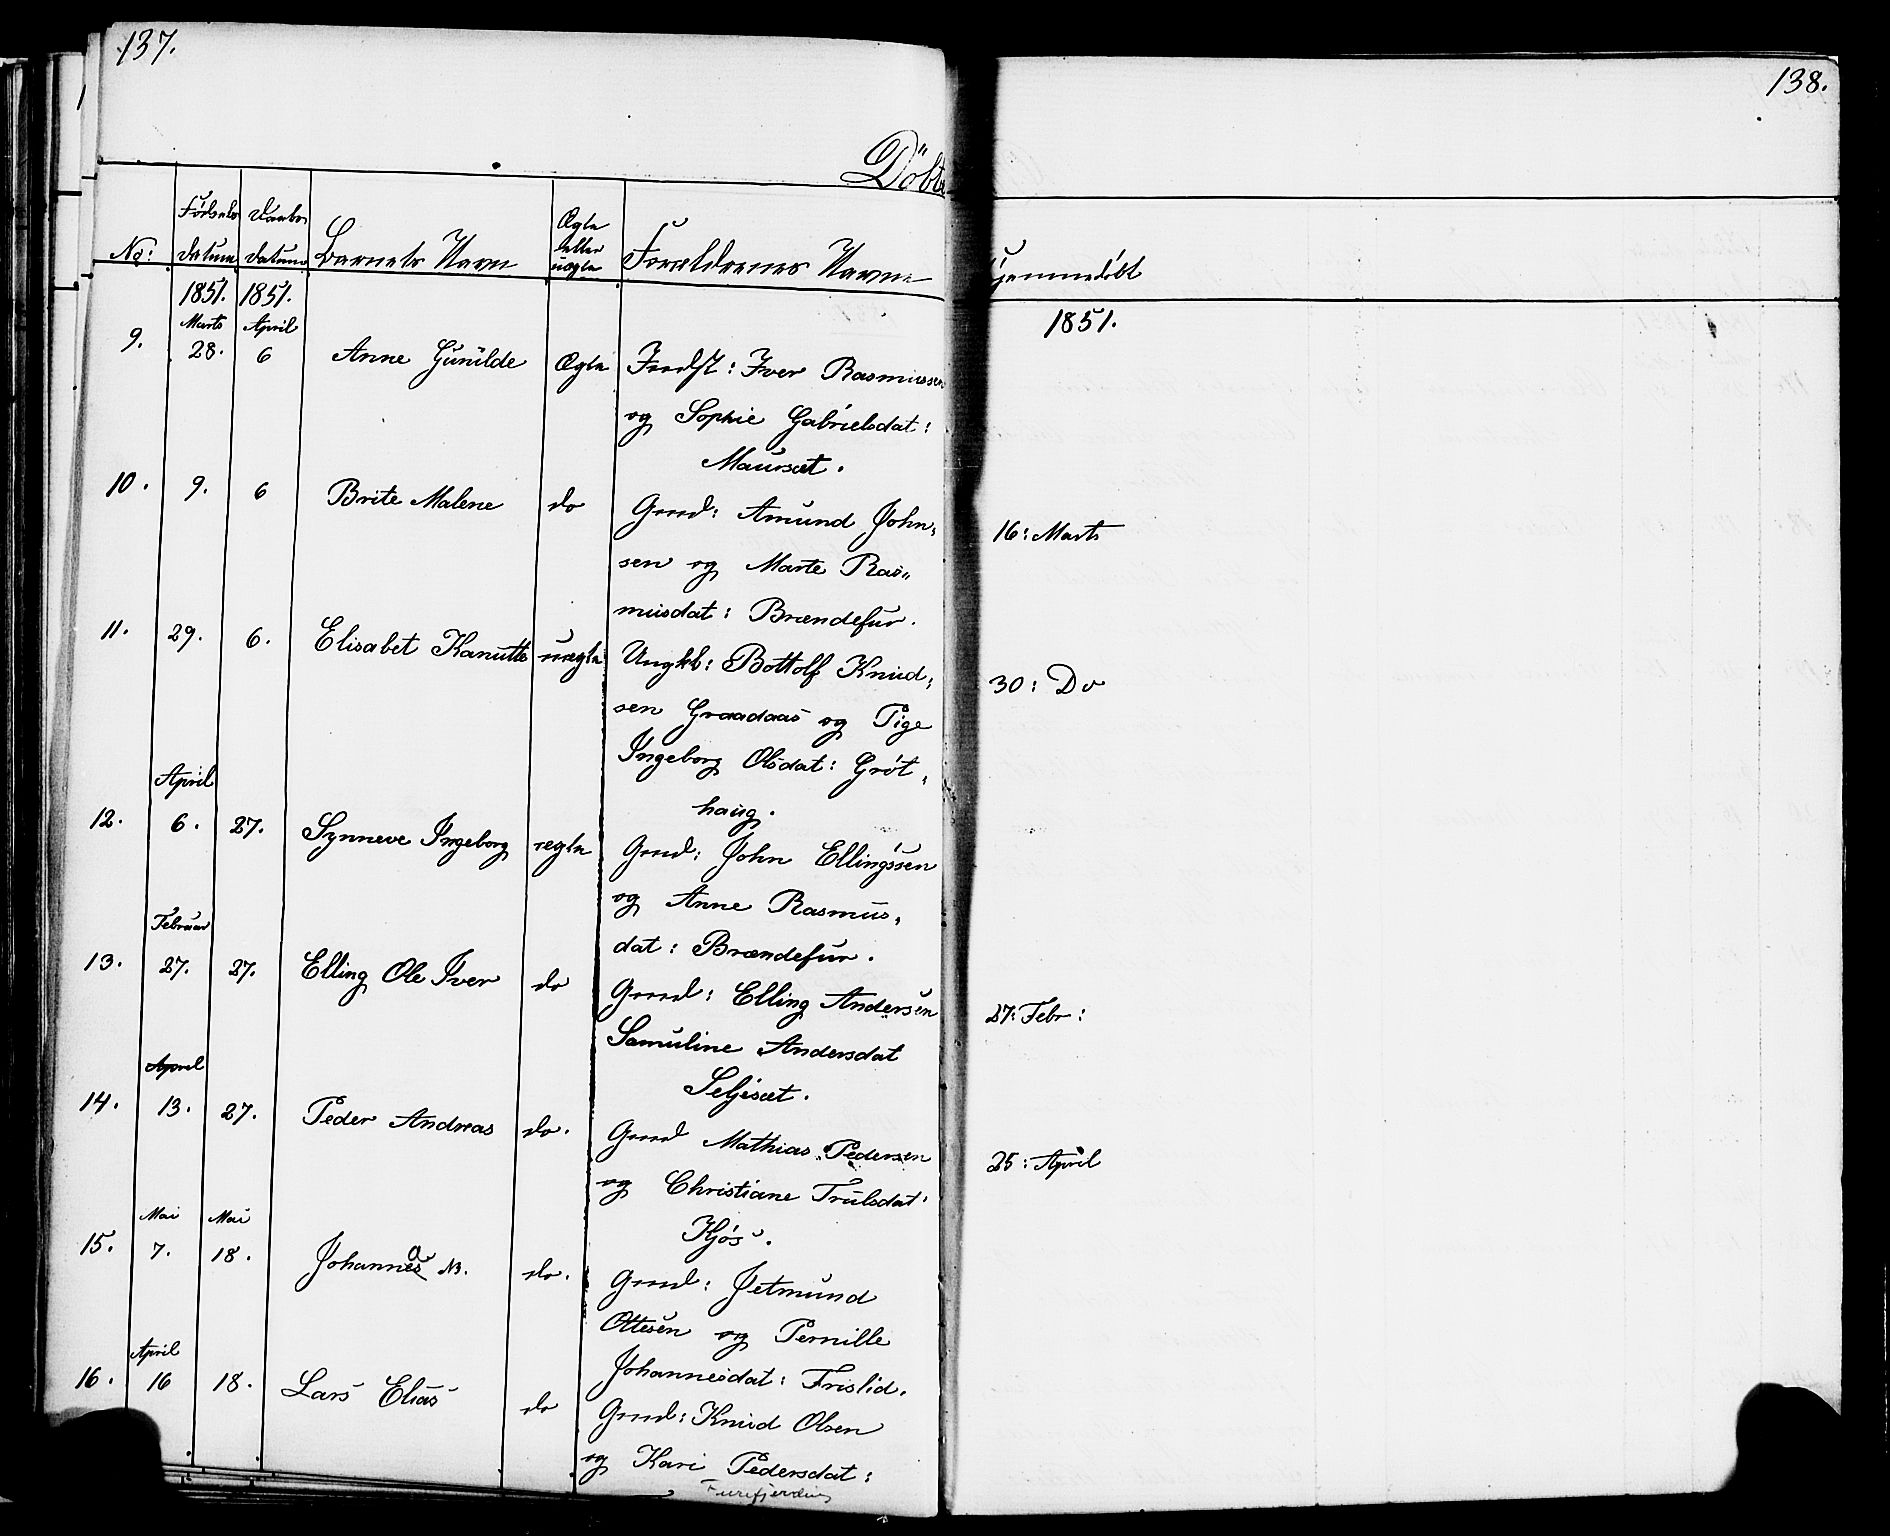 137.
Döbte
No:
Fødsels
datum
Daabs
datum
Barnets Navn
Ægte
eller
uægte
Forældrenes Navne
1851.
1851.
Marts
April
9.
28.
6
Anne Gunilde
Ægte
Indst: Iver Rasmussen
og Sophie Gabrielsdat:
Maursæt.
10.
9.
6
Brite Malene
do
Grnd: Amund John,
sen og Marte Ras,,
musdat: Brændefur.
11.
29.
6.
Elisabet Kanutte
uægte
Ungkl: Bottolf Knud,
sen Graadaas og Pige
Ingeborg Olsdat: Grøt,
haug.
April
12.
6.
27.
Synneve Ingeborg
ægte
Grnd: John Ellingssen
og Anne Rasmus,
dat: Brændefur.
Februar
13.
27.
27.
Elling Ole Iver
do
Grnd: Elling Andersen
Samuline Andersdat
Seljesæt.
April
14.
13.
27.
Peder Andreas
do.
Grnd Mathias Pedersen
og Christiane Trulsdat:
Kjøs.
Mai
Mai
15.
7.
18.
Johannes NB.
do.
Grnd: Jetmund
Ottesen og Pernille
Johannesdat: Frislid.
April
16.
16
18.
Lars Elias
do
Grnd: Knud Olsen
og Kari Pedersdat:
138.
Hjemmedöbt
1851.
16: Marts
30: Do
27: Febr:
25: April